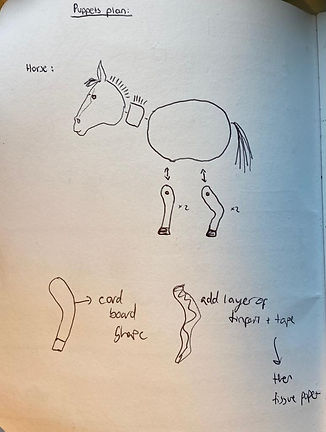 Puppets plan:
Horse :
x2
x2
card
board
shape
add layer of
tinfoil + tape
then
tissue paper